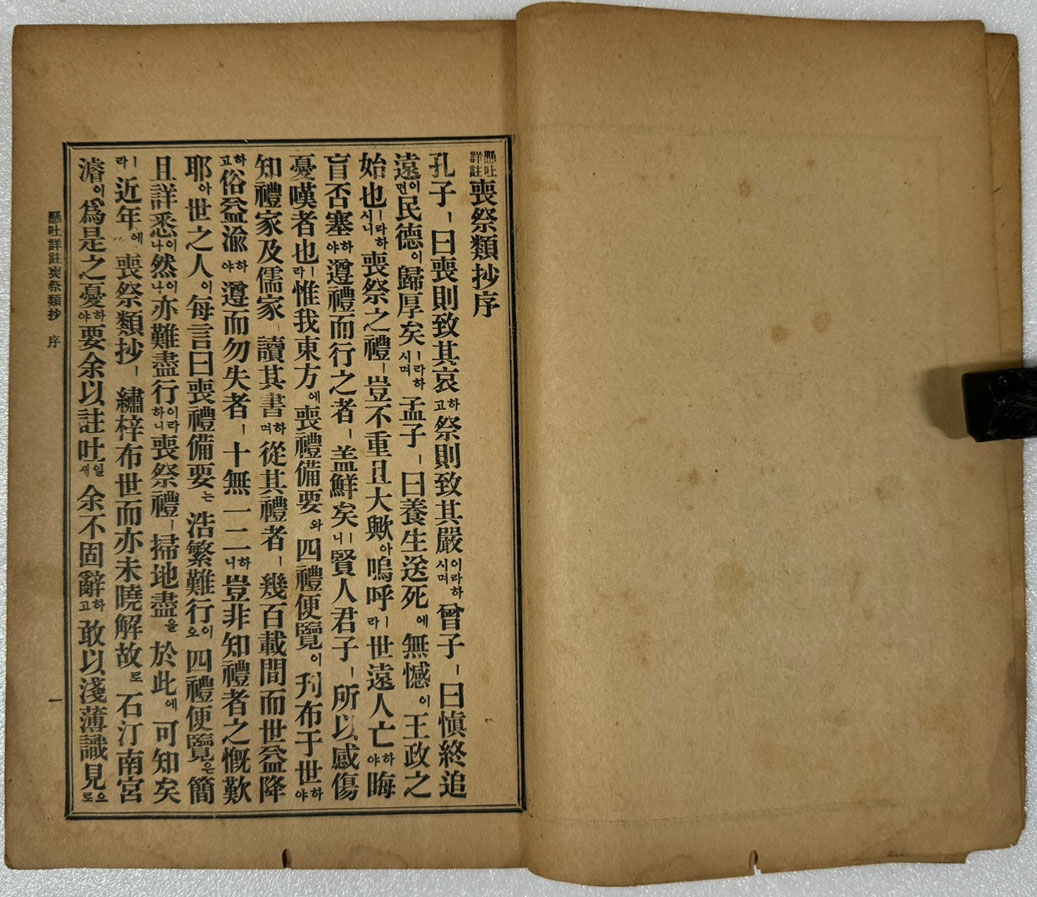 懸吐詳註喪祭類抄序
孔子ㅣ曰喪則致其哀하고祭則致其嚴이라하시며曾子ㅣ曰愼終追
遠이면民德이歸厚矣ㅣ라하시며孟子ㅣ曰養生送死에無憾이王政之
始也ㅣ라하시니喪祭之禮ㅣ豈不重且大歟아嗚呼ㅣ라世遠人亡하야晦
盲否塞하야遵禮而行之者ㅣ盖鮮矣니ㅣ賢人君子ㅣ所以感傷
憂嘆者也ㅣ라惟我東方에喪禮備要와四禮便覽이刋布于世하야
知禮家及儒家ㅣ讀其書하며從其禮者ㅣ幾百載間而世益降
하고俗益渝하야遵而勿失者ㅣ十無一二하니豈非知禮者之慨歎
耶아世之人이每言曰喪禮備要는浩繁難行이오四禮便覽은簡
且詳悉이나然이나亦難盡行이라하니喪祭禮ㅣ掃地盡을於此에可知矣
ㅣ라近年에喪祭類抄ㅣ繡梓布世而亦未曉解故로石汀南宮
濬이爲是之憂하야要余以註吐일새余不固辭하고敢以淺薄識見으로
懸吐詳註喪祭類抄 序
一